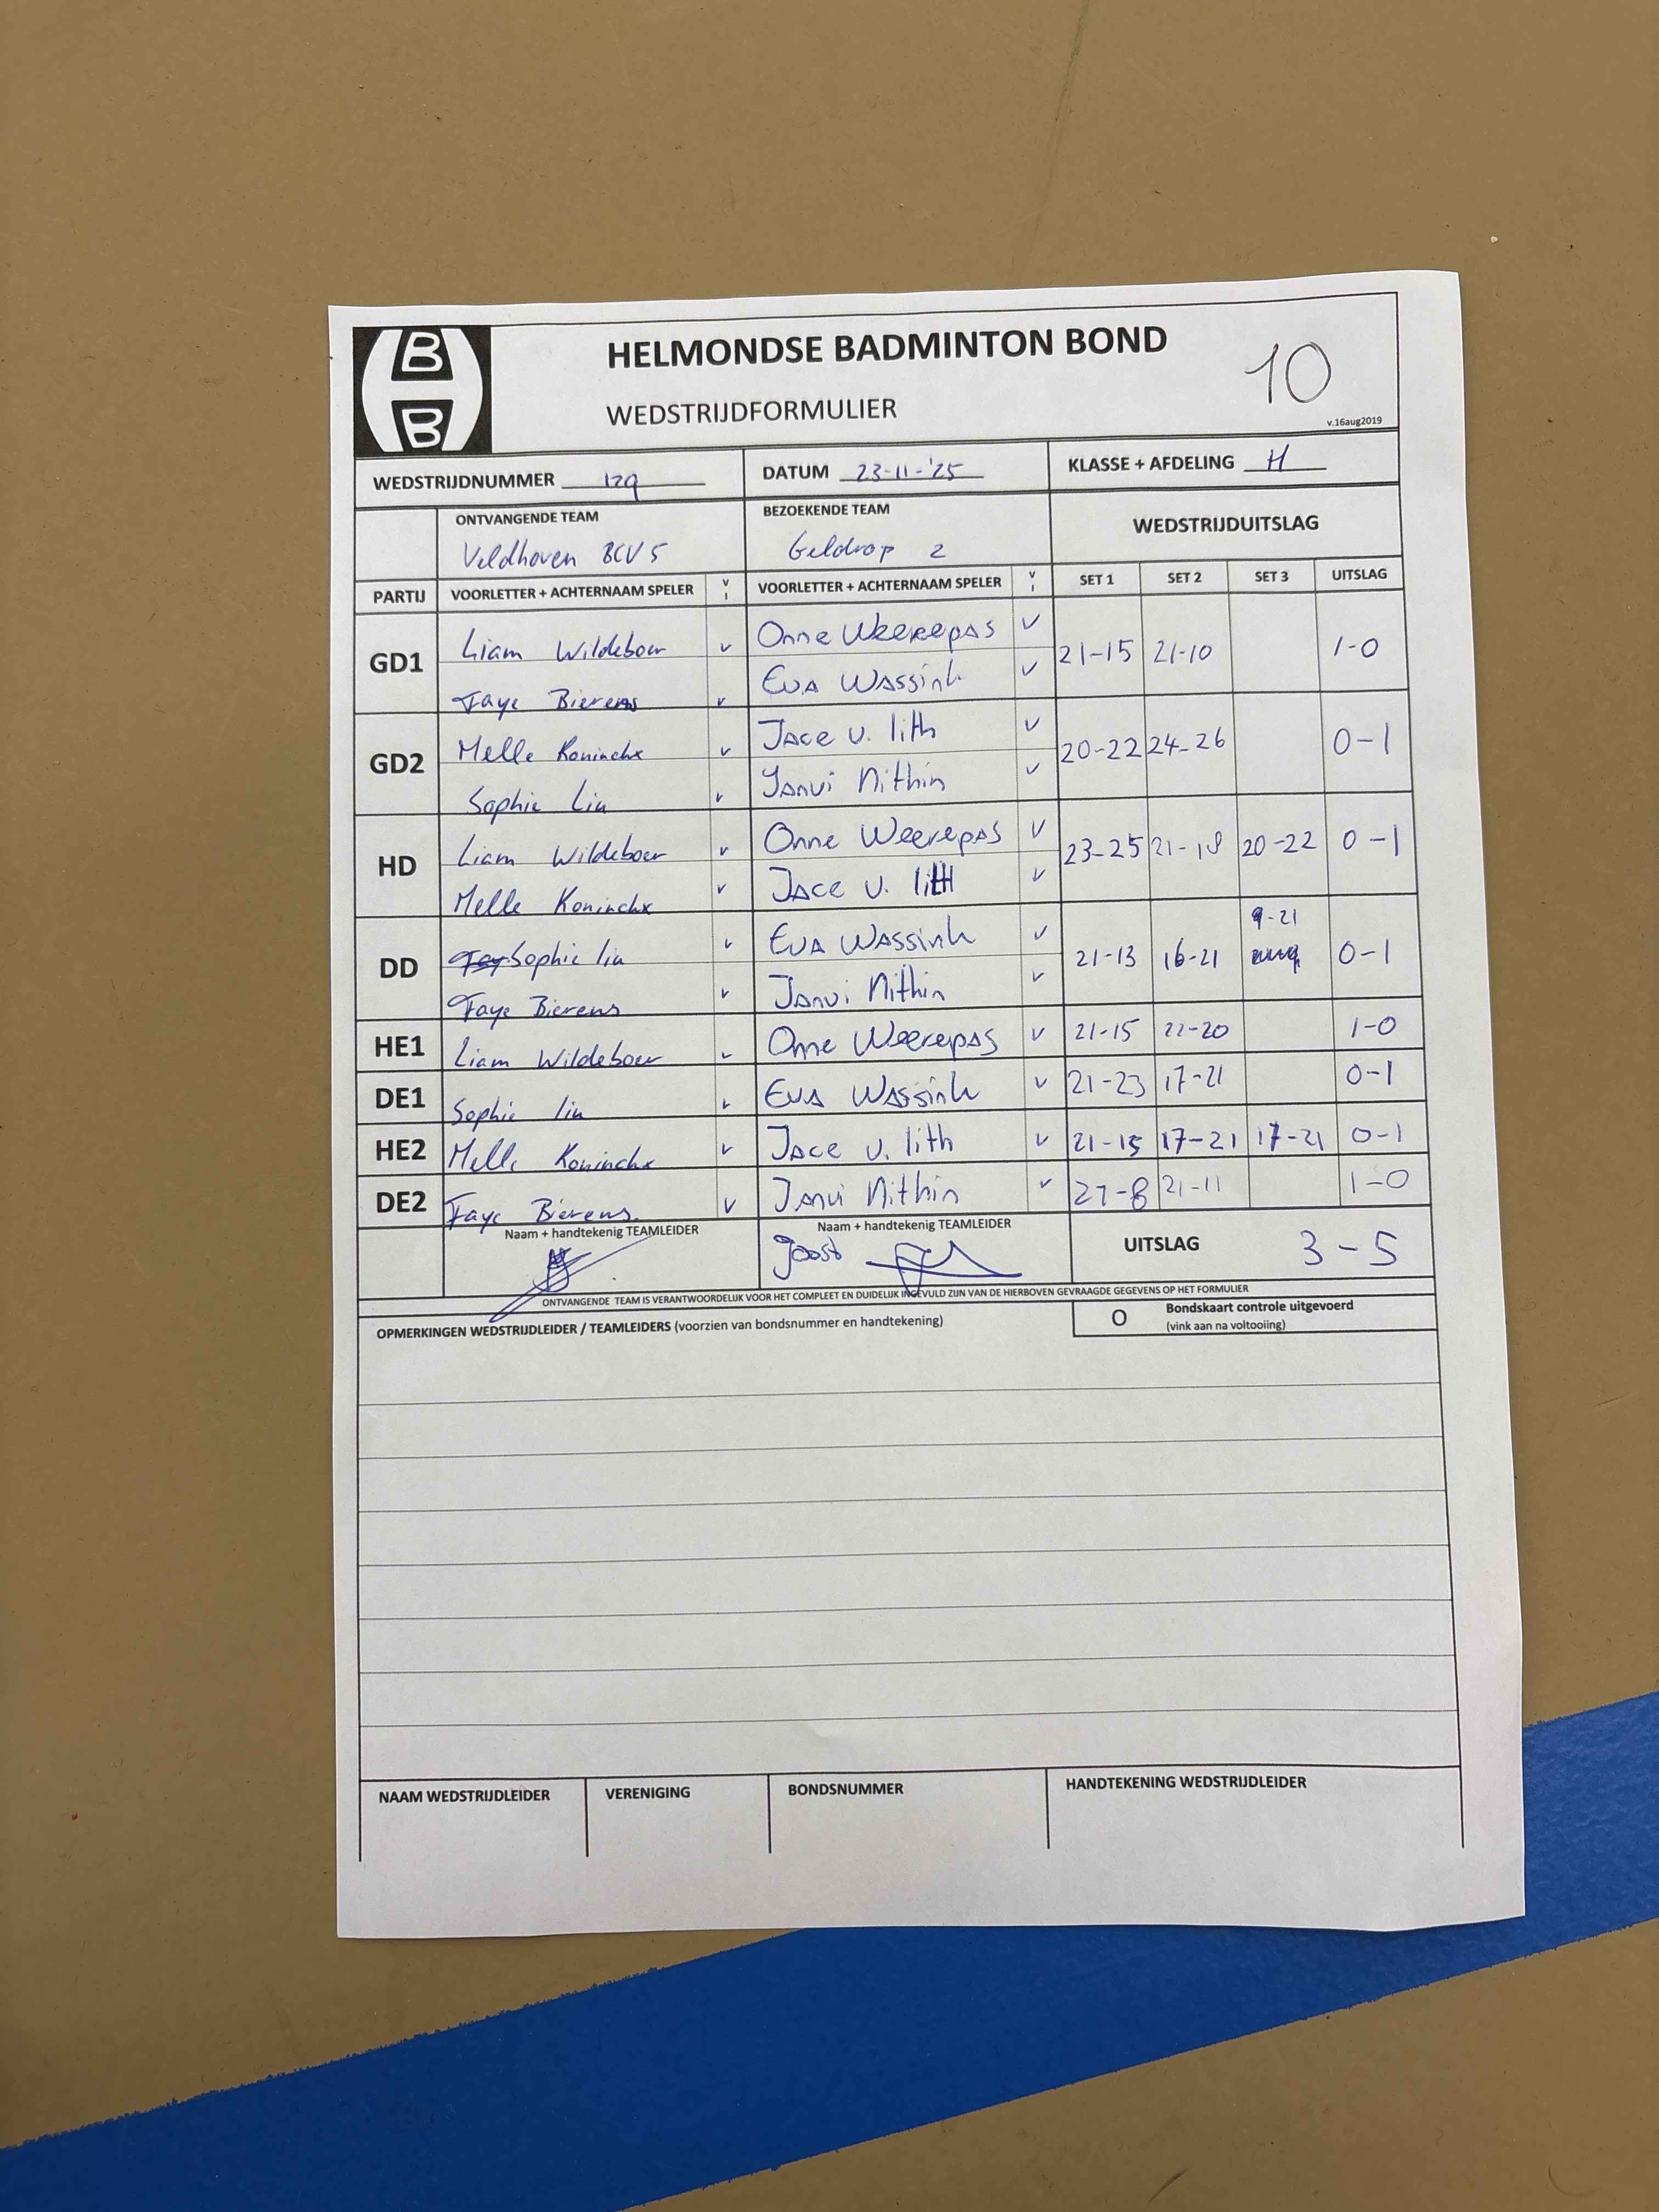 B
B
HELMONDSE BADMINTON BOND
WEDSTRIJDFORMULIER
10
v.16aug2019
WEDSTRIJDNUMMER 129 DATUM 23-11-'25 KLASSE + AFDELING H
ONTVANGENDE TEAM BEZOEKENDE TEAM WEDSTRIJDUITSLAG
Veldhoven BCV 5 Geldrop 2
PARTIJ VOORLETTER + ACHTERNAAM SPELER V VOORLETTER + ACHTERNAAM SPELER V SET 1 SET 2 SET 3 UITSLAG
GD1 Liam Wildeboer v Onne Weerepas v 21-15 21-10 1-0
Faye Bierens v Eva Wassink v
GD2 Melle Koninckx v Jace v. lith v 20-22 24-26 0-1
Sophie Liu v Janvi Nithin v
HD Liam Wildeboer v Onne Weerepas v 23-25 21-18 20-22 0-1
Melle Koninckx v Jace v. lith v
DD Sophie liu v Eva Wassink v 21-13 16-21 9-21 0-1
Faye Bierens v Janvi Nithin v
HE1 Liam Wildeboer v Onne Weerepas v 21-15 22-20 1-0
DE1 Sophie liu v Eva Wassink v 21-23 17-21 0-1
HE2 Melle Koninckx v Jace v. lith v 21-15 17-21 17-21 0-1
DE2 Faye Bierens v Janvi Nithin v 21-8 21-11 1-0
Naam + handtekenig TEAMLEIDER Naam + handtekenig TEAMLEIDER
Joost UITSLAG 3-5
ONTVANGENDE TEAM IS VERANTWOORDELIJK VOOR HET COMPLEET EN DUIDELIJK INGEVULD ZIJN VAN DE HIERBOVEN GEVRAAGDE GEGEVENS OP HET FORMULIER
OPMERKINGEN WEDSTRIJDLEIDER / TEAMLEIDERS (voorzien van bondsnummer en handtekening) O Bondskaart controle uitgevoerd
(vink aan na voltooiing)
NAAM WEDSTRIJDLEIDER VERENIGING BONDSNUMMER HANDTEKENING WEDSTRIJDLEIDER